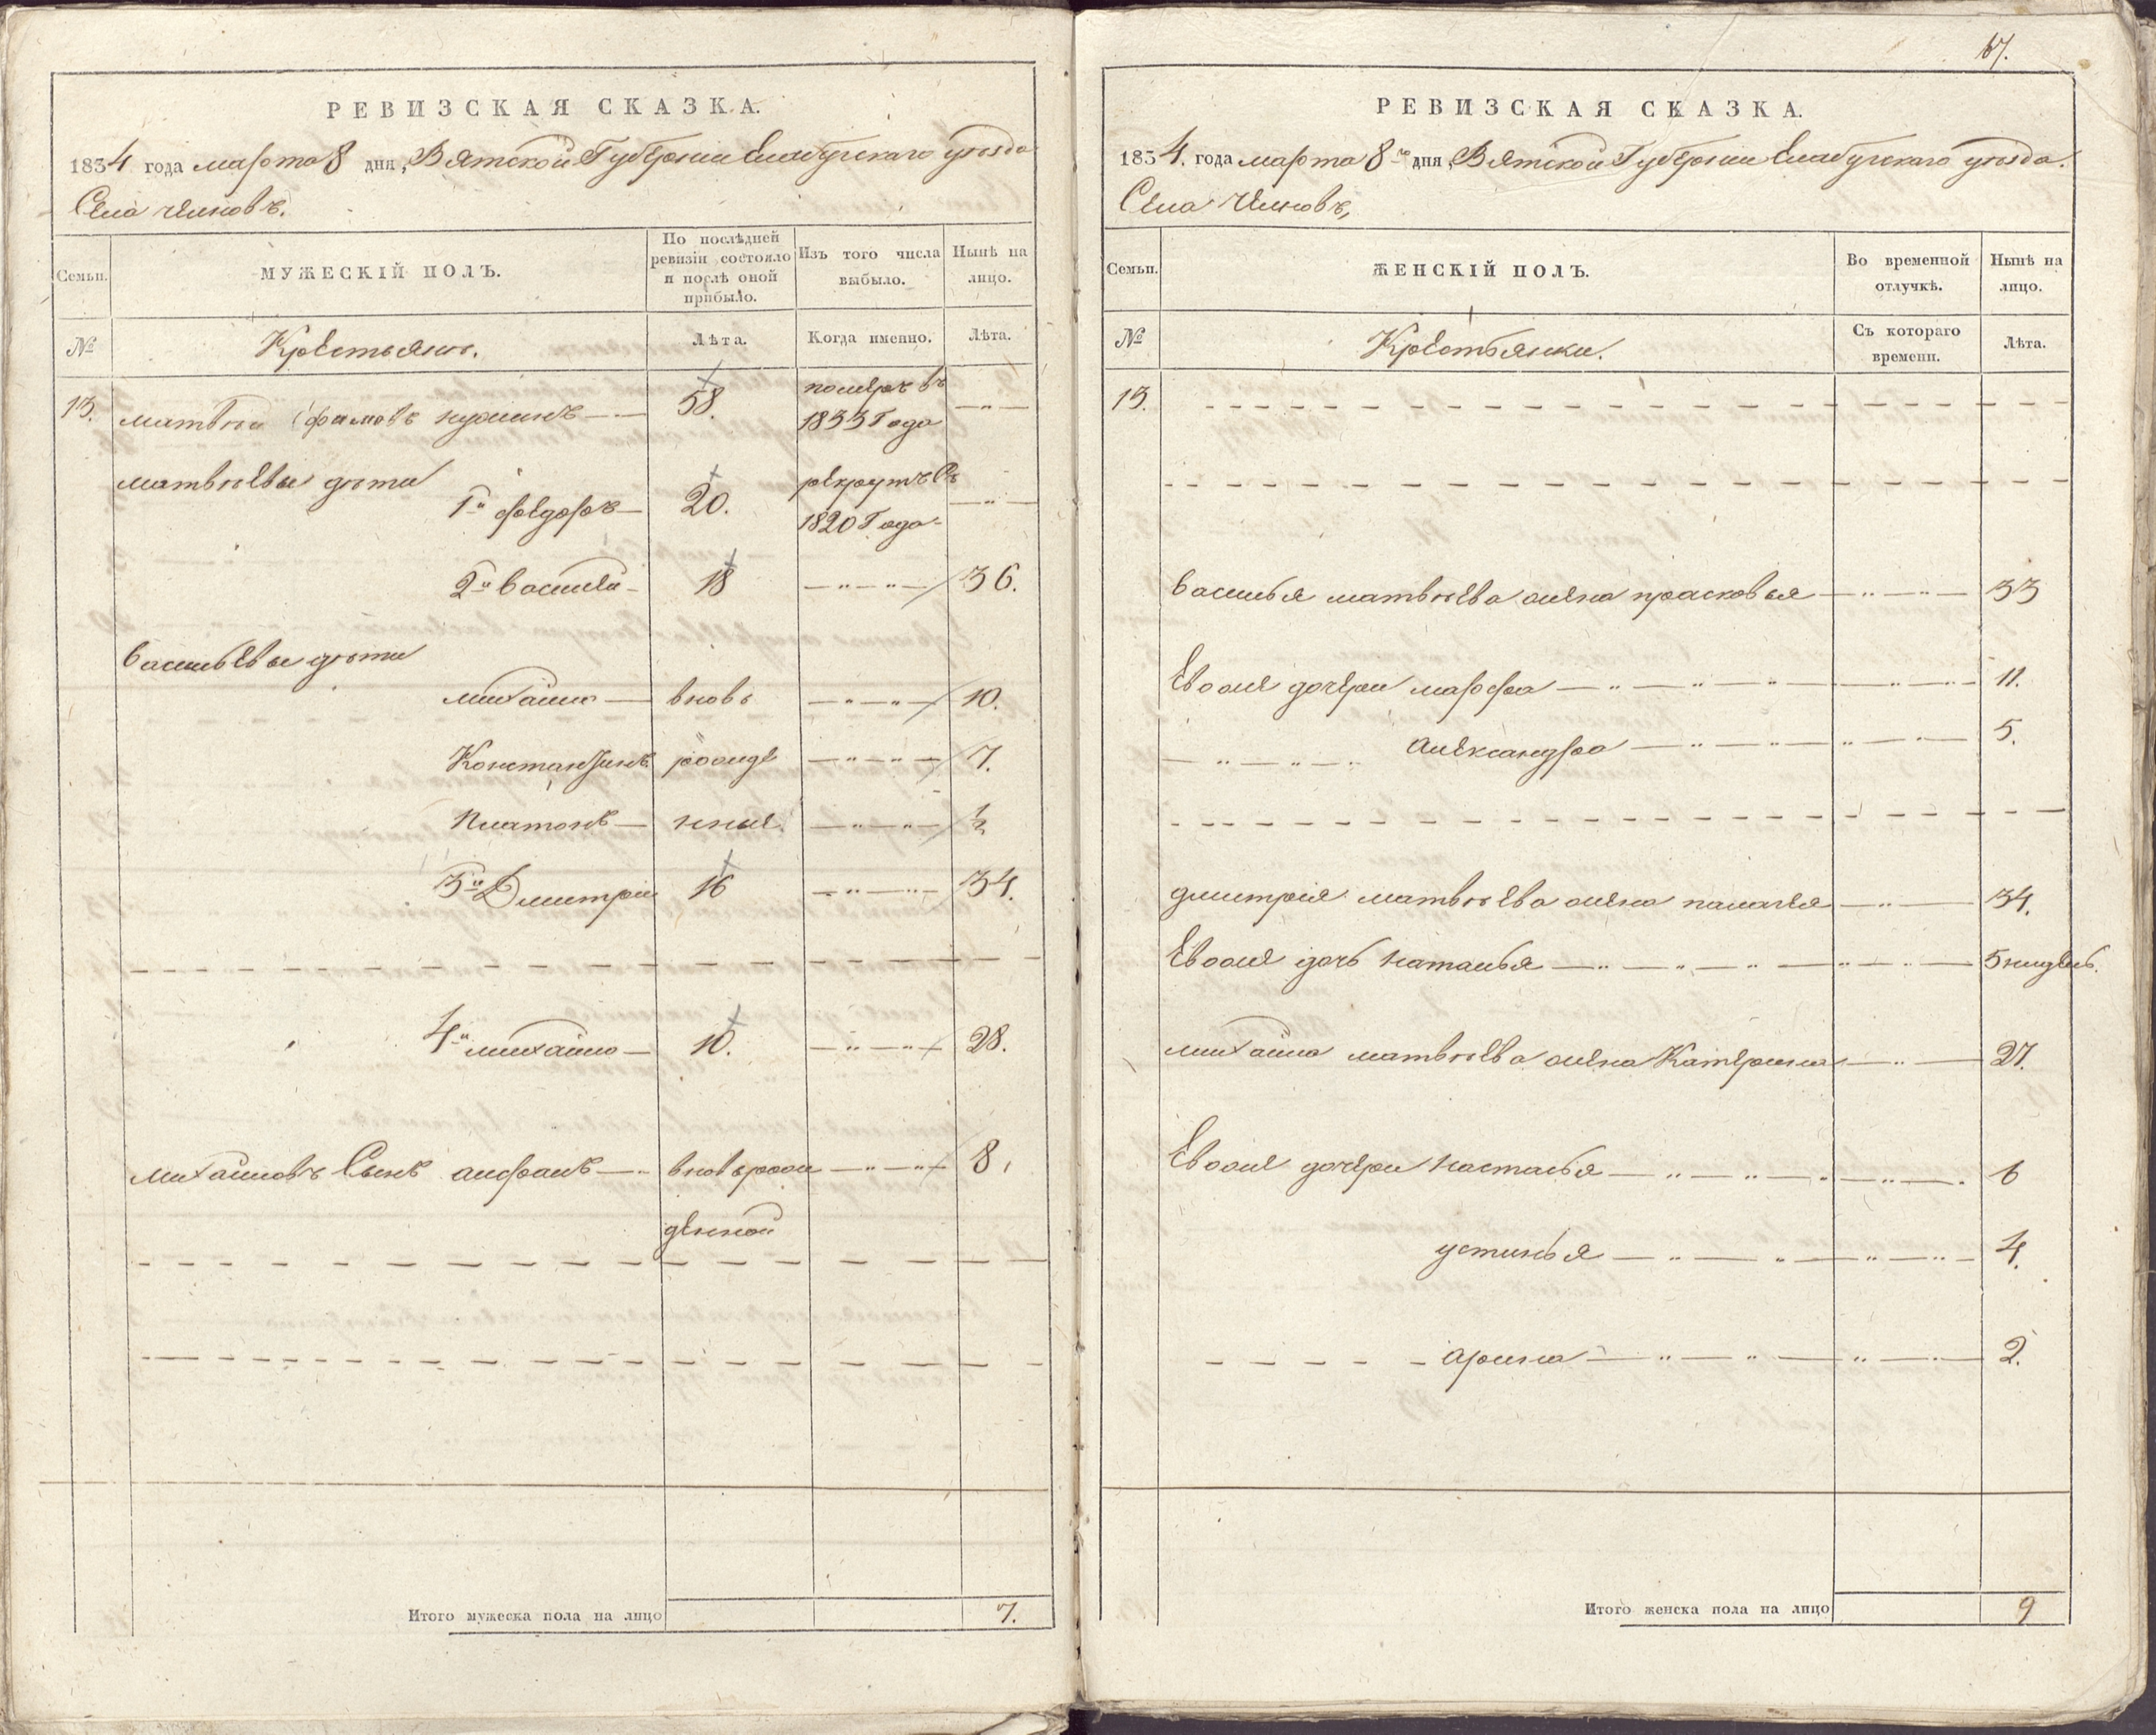 РЕВИЗСКАЯ СКАЗКА.
1834 года марта 8 дня, Вятской Губернии Елабугскаго уѣзда
Села Челновъ.
Семьи.
МУЖЕСКІЙ ПОЛЪ.
По послѣдней ревизіи состояло и послѣ оной прибыло.
Изъ того числа выбыло.
Нынѣ на лицо.
№
Крестьянъ.
Лѣта.
Когда именно.
Лѣта.
13. матвѣй 58. померъ въ 1833 Года
матвѣевы дѣти
1й федоръ 20. рекрутъ въ 1820 Года
2й василей 18 36.
васильевы дѣти
михаило вновь 10.
Константинъ рожде 7.
Платонъ нныя ½
3й Дмитрій 16 34.
4й михаило 10. 28.
михаиловъ Сынъ вновь рожденной 8.
Итого мужеска пола на лицо 7.
67.
РЕВИЗСКАЯ СКАЗКА.
1834. года марта 8го дня, Вятской Губернии Елабугскаго уѣзда.
Села Челновъ,
Семьи.
ЖЕНСКІЙ ПОЛЪ.
Во временной отлучкѣ.
Нынѣ на лицо.
№
Крестьянки.
Съ котораго времени.
Лѣта.
13.
василья матвѣева жена прасковья 33
Евоже дочери марфа 11.
александра 5.
дмитрія матвѣева жена палагея 34.
Евоже дочь наталья 5 нидель.
михаила матвѣева жена Катерина 27.
Евоже дочери настасья 6
устинья 4.
арина 2.
Итого женска пола на лицо 9